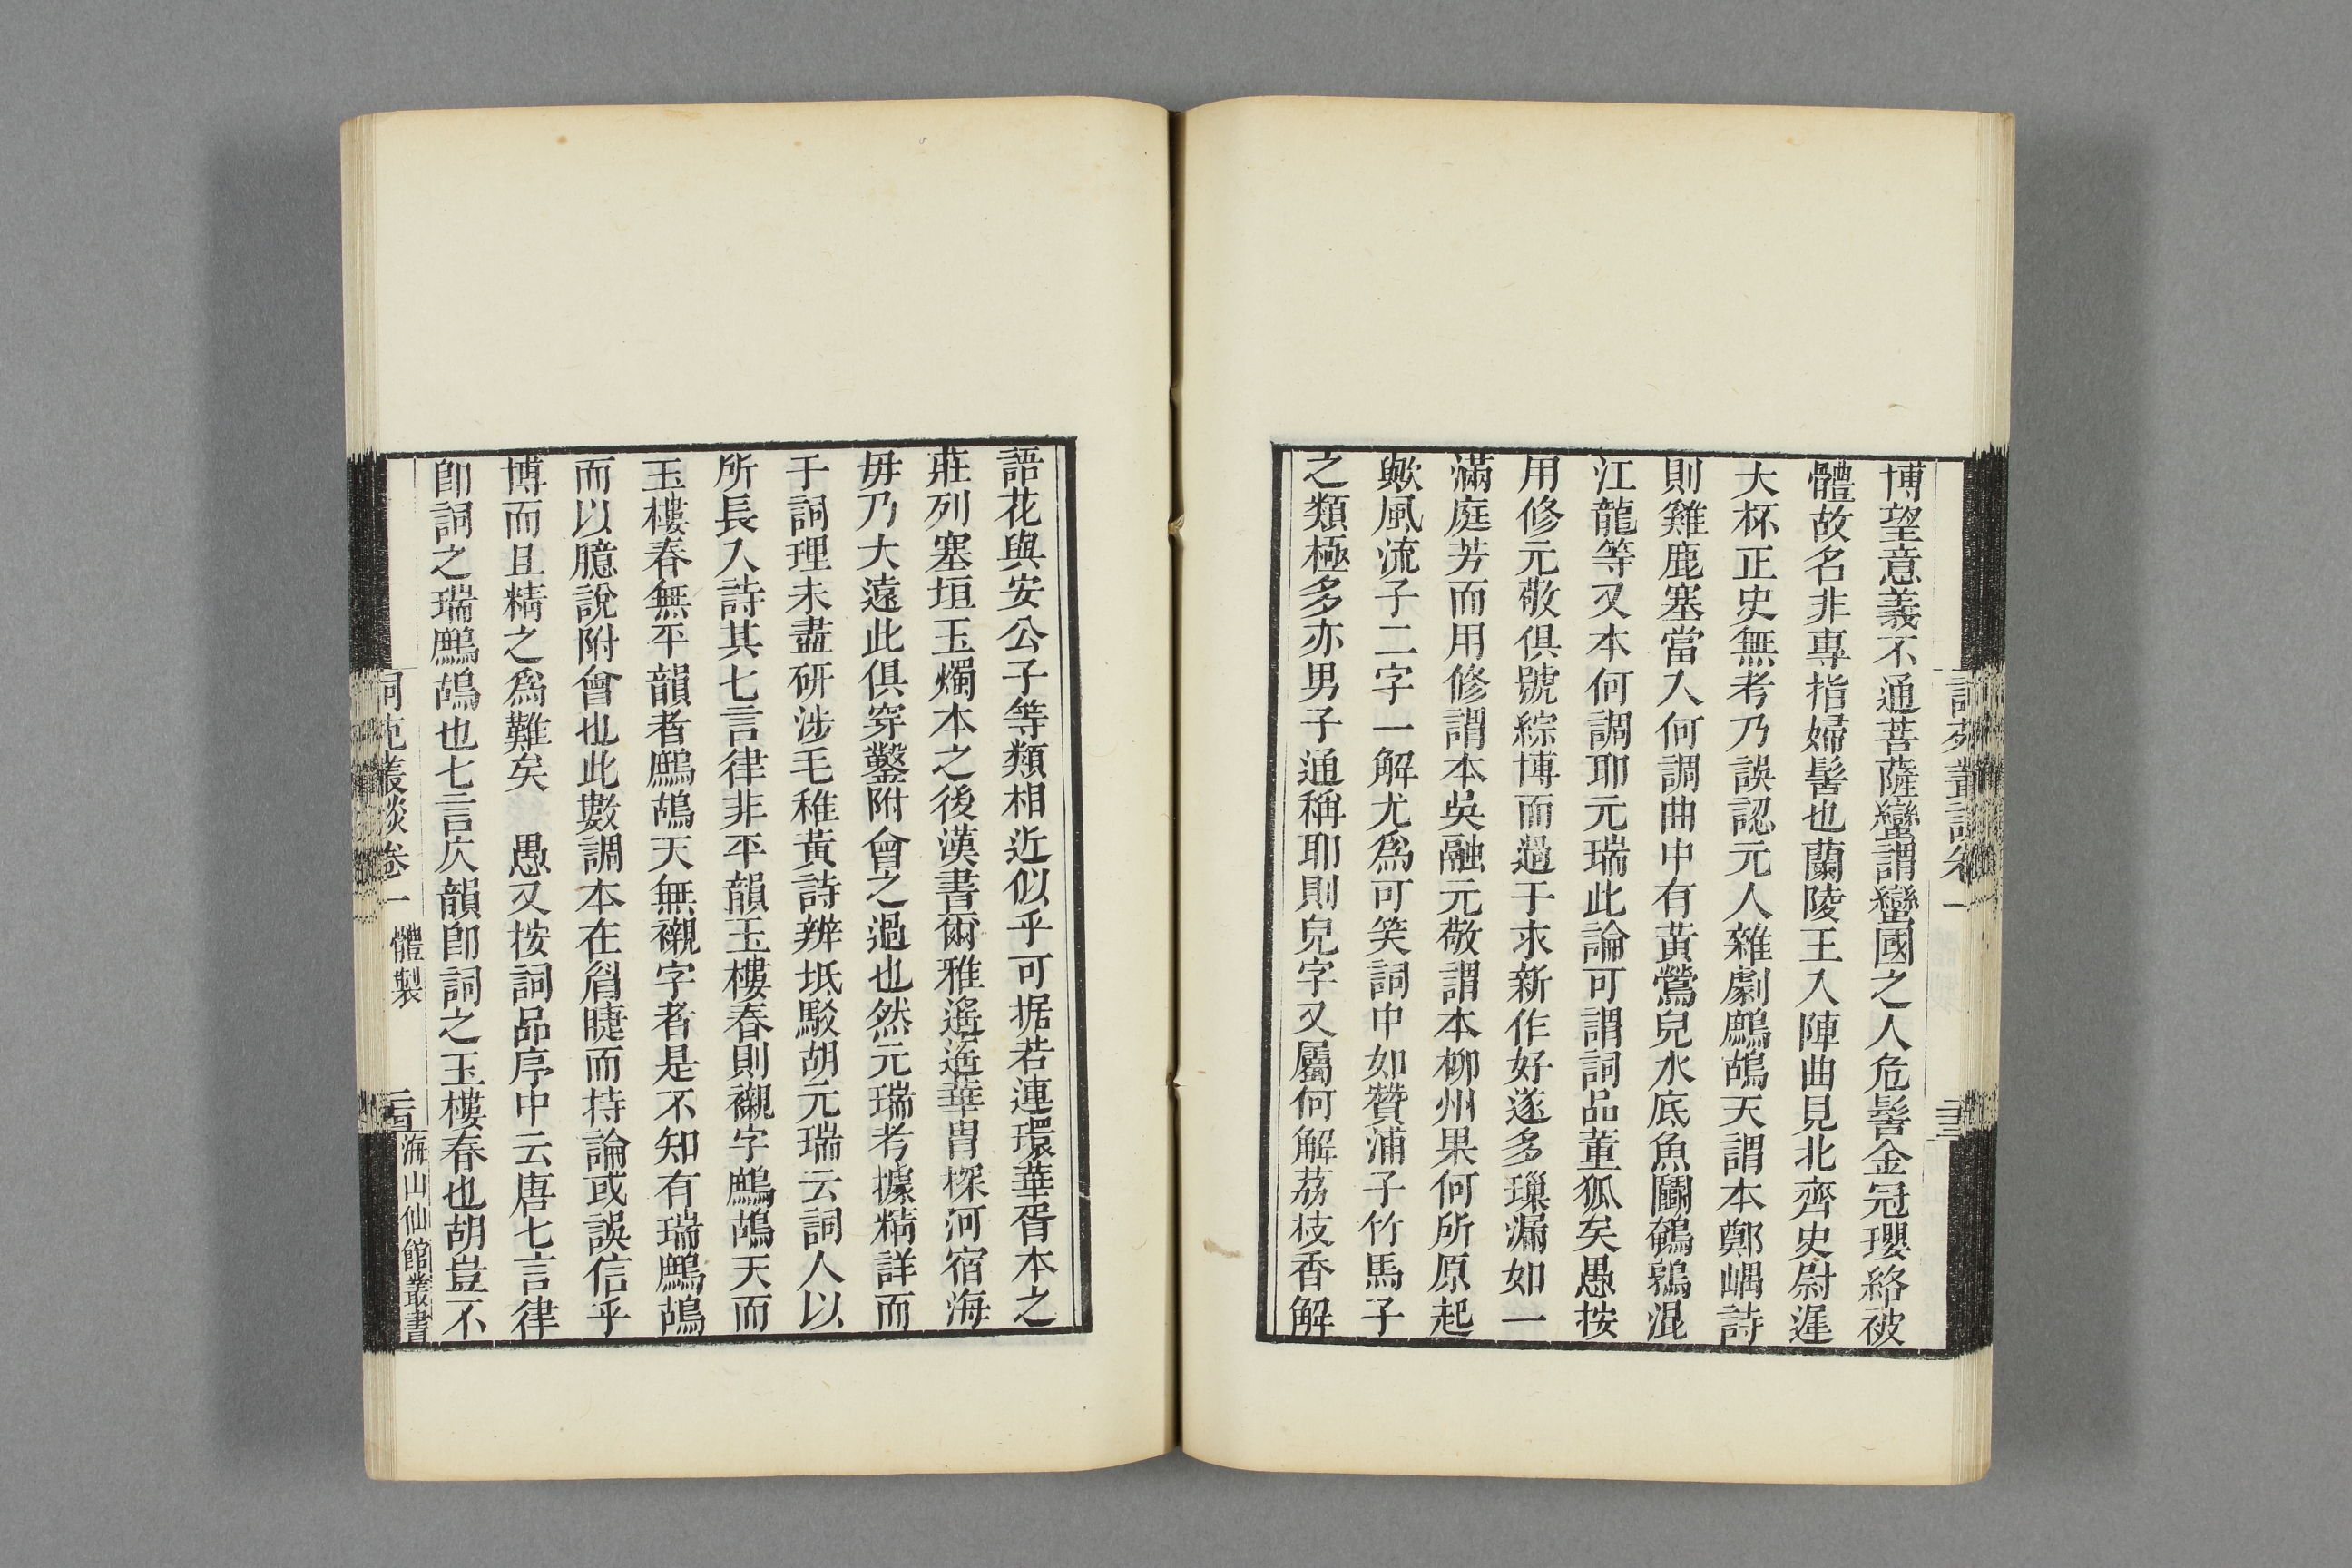 博望意義不通菩薩蠻謂蠻國之人危髻金冠瓔絡被
體故名非專指婦髻也蘭陵王入陣曲見北齊史尉遲
大杯正史無考乃誤認元人雜劇鷓鴣天謂本鄭嵎詩
則雞鹿塞當入何調曲中有黃鶯兒水底魚鬬鵪鶉混
江龍等又本何調耶元瑞此論可謂詞品董狐矣愚按
用修元敬俱號綜博而過于求新作好遂多璅漏如一
滿庭芳而用修謂本吳融元敬謂本柳州果何所原起
歟風流子二字一解尤爲可笑詞中如贊浦子竹馬子
之類極多亦男子通稱耶則兒字又屬何解荔枝香解
語花與安公子等類相近似乎可据若連環華胥本之
莊列塞垣玉燭本之後漢書爾雅遙遙華胄探河宿海
毋乃大遠此俱穿鑿附會之過也然元瑞考據精詳而
于詞理未盡研涉毛稚黃詩辨坻駁胡元瑞云詞人以
所長入詩其七言律非平韻玉樓春則襯字鷓鴣天而
玉樓春無平韻者鷓鴣天無襯字者是不知有瑞鷓鴣
而以臆說附會也此數調本在眉睫而持論或誤信乎
博而且精之爲難矣　愚又按詞品序中云唐七言律
卽詞之瑞鷓鴣也七言仄韻卽詞之玉樓春也胡豈不
詞苑叢談卷一 體製 海山仙館叢書